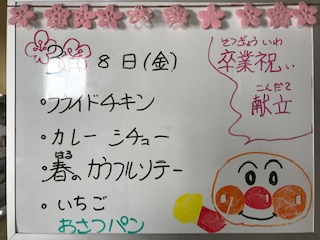 3月8日(金)
そつぎょう いわ
卒業祝い
こんだて
献立
・フライドチキン
・カレー シチュー
・春のカラフルソテー
はる
・いちご
おさつパン